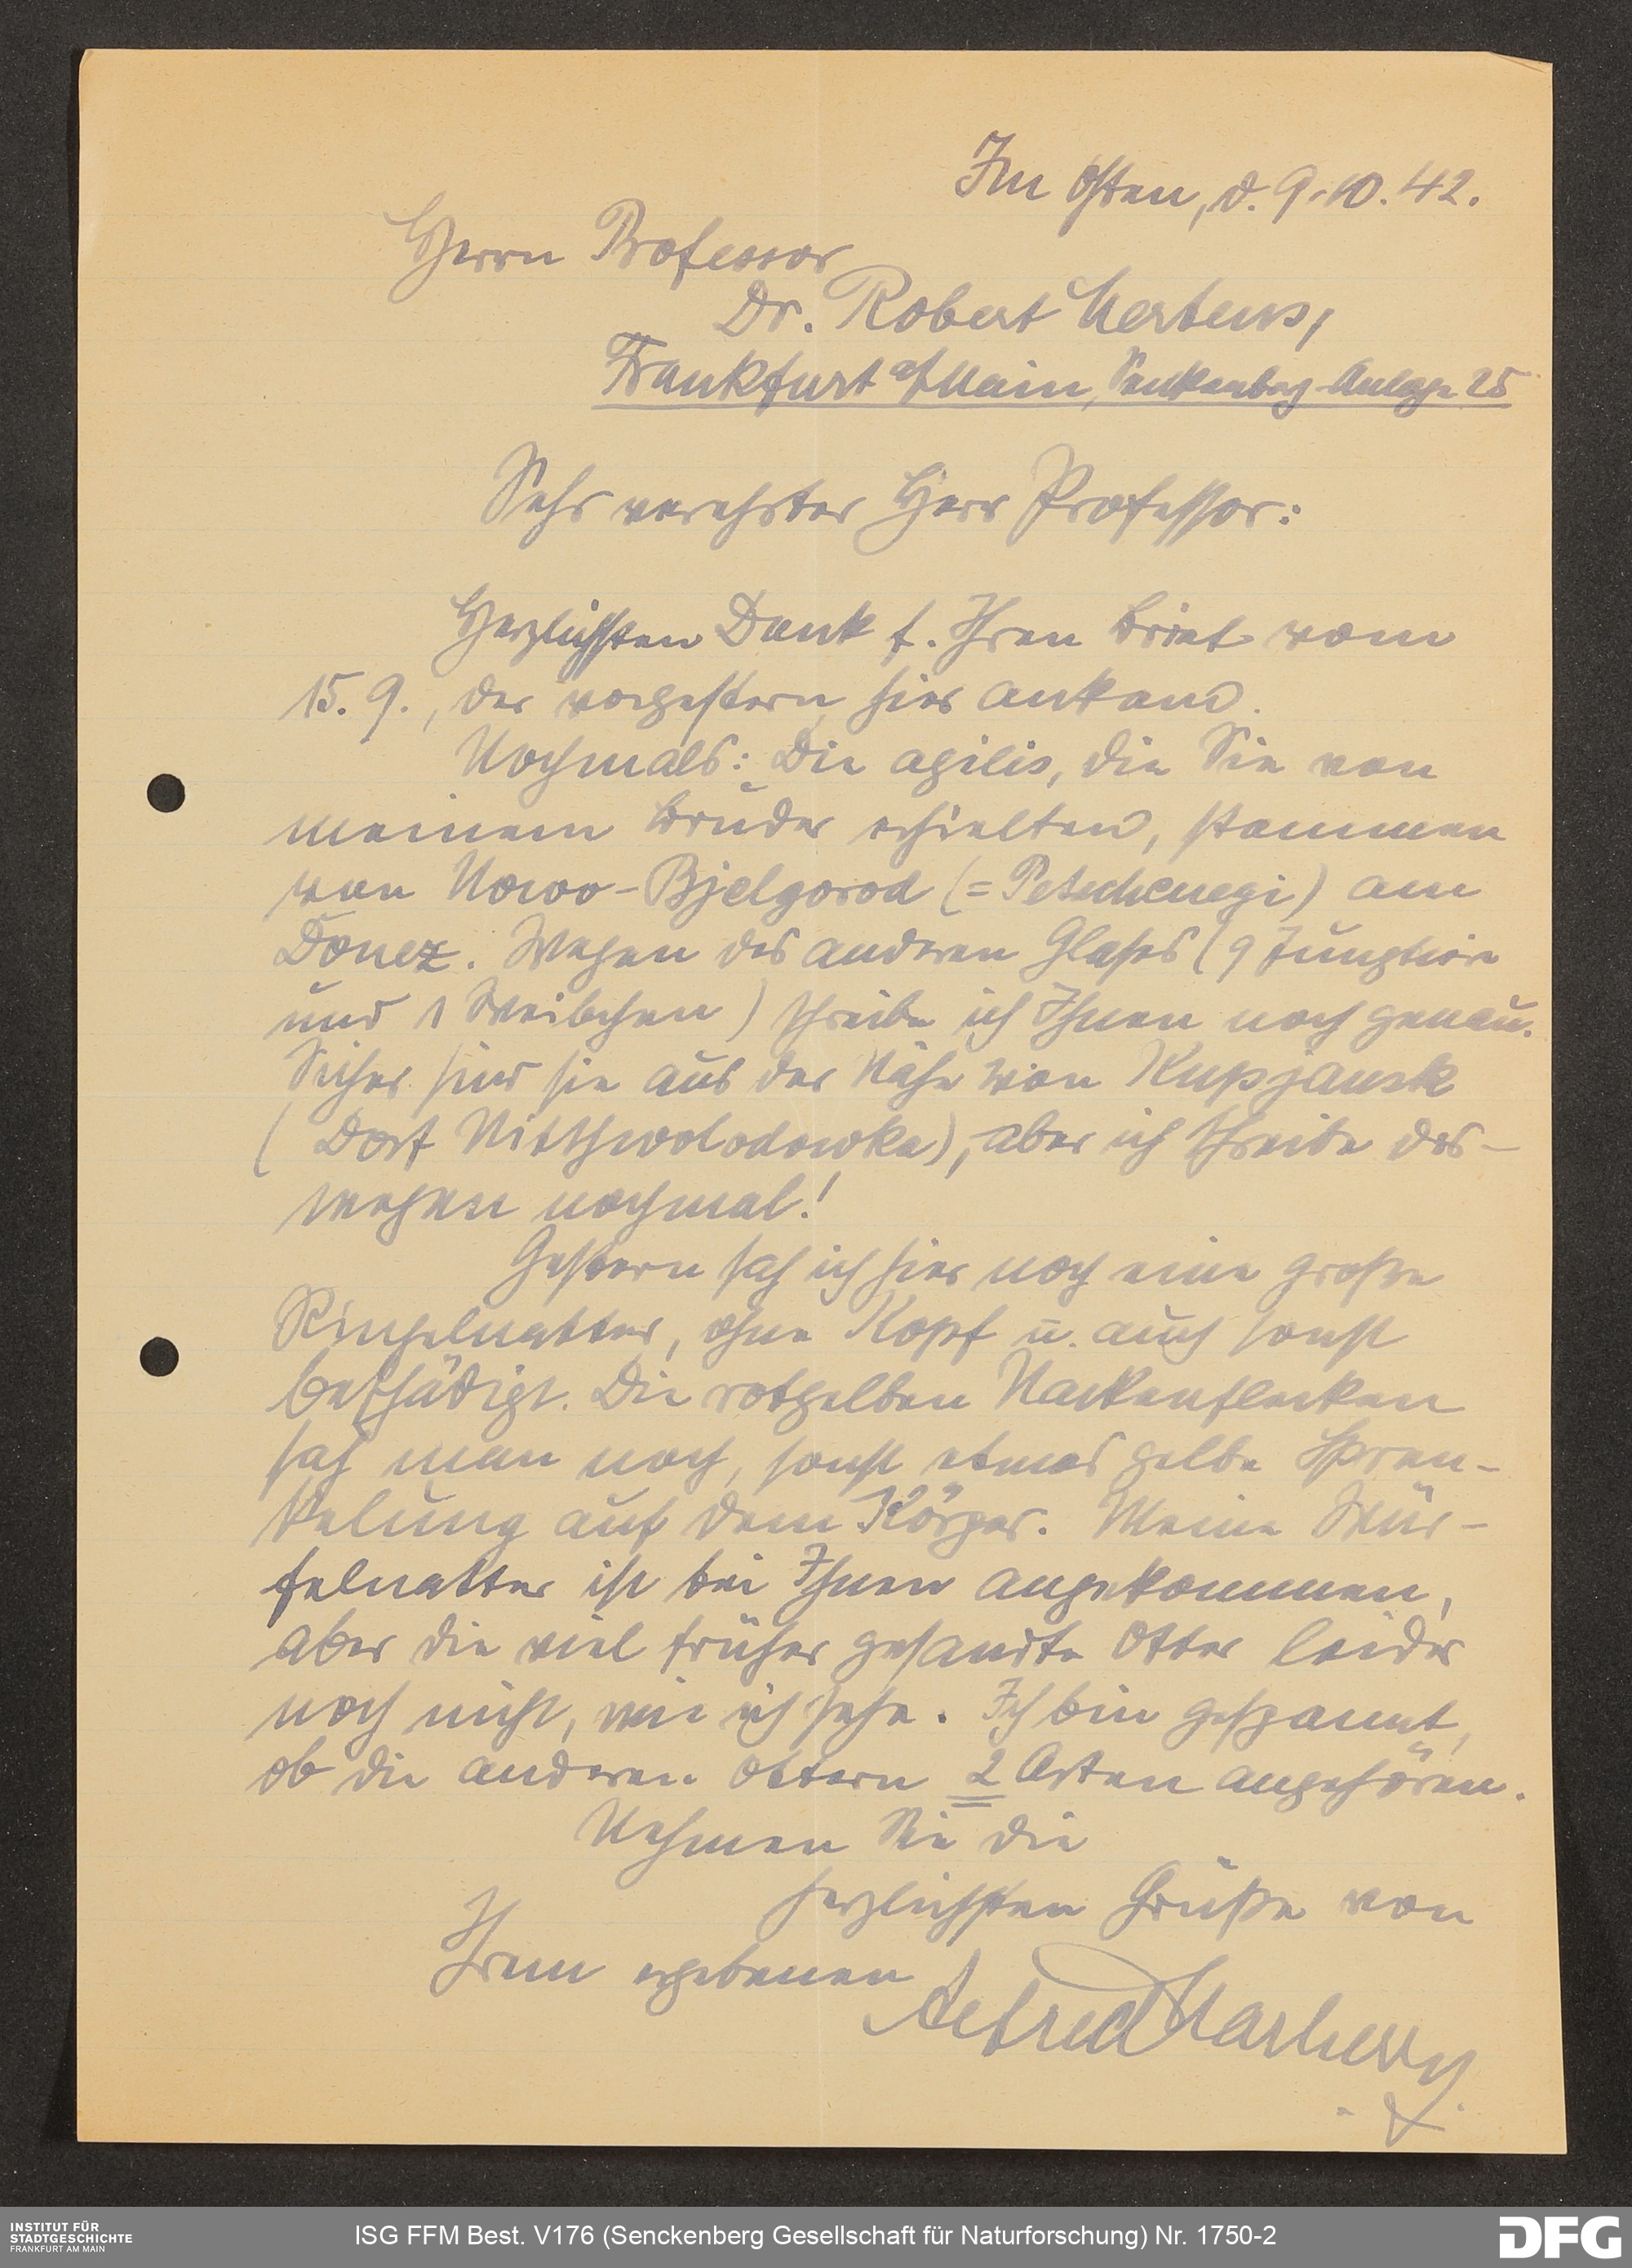 Im Osten, d. 9.10.42.
Herrn Professor
Dr. Robert Mertens,
Frankfurt a/Main, Senckenberg-Anlage 25
Sehr verehrter Herr Professor:
Herzlichsten Dank f. Ihren Brief vom
15. 9., der vorgestern hier ankam.
Nochmals: Die agilis, die Sie von
meinem Bruder erhielten, stammen
von Nowo-Bjelgorod (= Petschenegi) am
Donez. Wegen des anderen Glases (9 Jungtiere
und 1 Weibchen) schreibe ich Ihnen noch genau.
Sicher sind sie aus der Nähe von Kupjansk
(Dorf Nittschwolodowka), aber ich schreibe des-
wegen nochmal!
Gestern sah ich hier noch eine große
Ringelnatter, ohne Kopf u. auch sonst
beschädigt. Die rotgelben Nackenflecken
sah man noch, sonst etwas gelbe Spren-
kelung auf dem Körper. Meine Wür-
felnatter ist bei Ihnen angekommen,
aber die viel früher gesandte Otter leider
noch nicht, wie ich sehe. Ich bin gespannt,
ob die anderen Ottern 2 Arten angehören.
Nehmen Sie die
herzlichsten Grüße von
Ihrem ergebenen
Alfred
INSTITUT FÜR
STADTGESCHICHTE
FRANKFURT AM MAIN
ISG FFM Best. V176 (Senckenberg Gesellschaft für Naturforschung) Nr. 1750-2
DFG